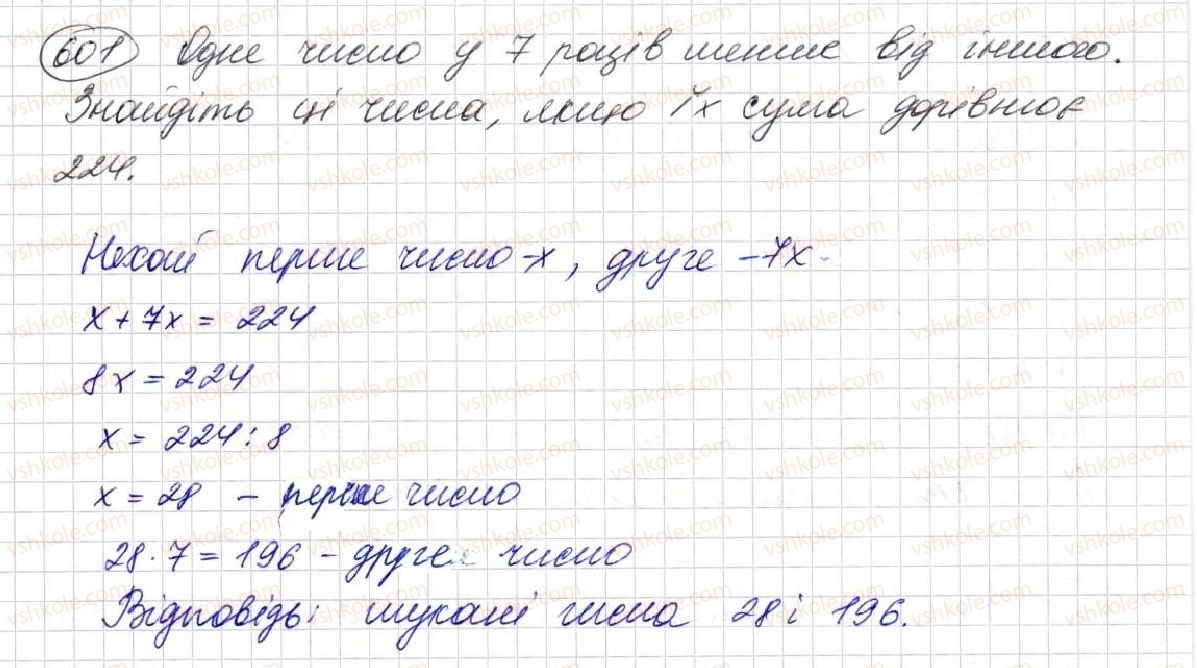 601 Одне число у 7 разів менше від іншого.
Знайдіть ці числа, якщо їх сума дорівнює
224.
Нехай перше число - x, друге - 7x.
x + 7x = 224
8x = 224
x = 224 : 8
x = 28 - перше число
28 · 7 = 196 - друге число
Відповідь: шукані числа 28 і 196.